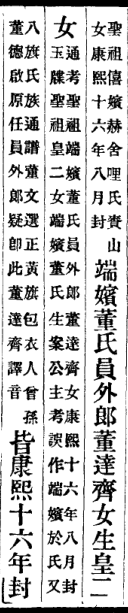 聖祖僖嬪赫舍哩氏賚山
女康熙十六年八月封
端嬪董氏員外郎董達齊女生皇二
女
通考聖祖端嬪董氏員外郎董達齊女康熙十六年八月封
玉牒聖祖皇二女端嬪董氏生案公主考誤作端嬪於氏又
八旗氏族通譜董文選正黃旗包衣人曾孫
董德啟原任員外郎疑即此董達齊譯音
皆康熙十六年封